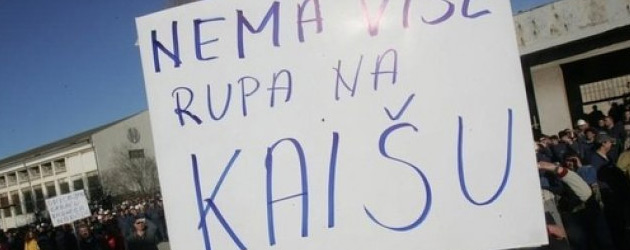 NEMA VIŠE
RUPA NA
KAIŠU